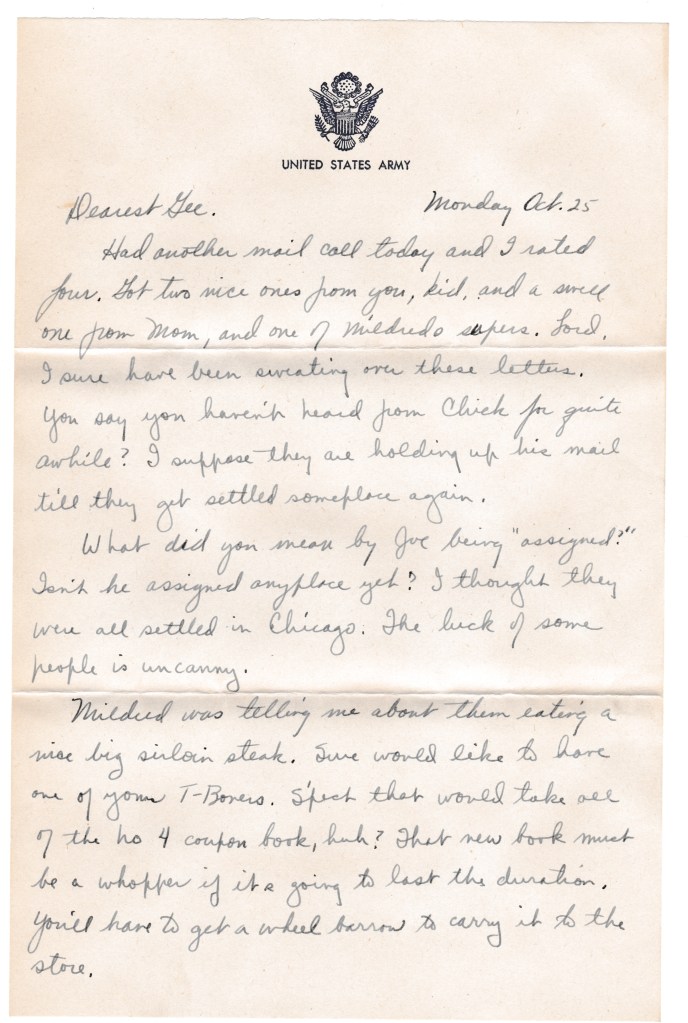 UNITED STATES ARMY
Dearest Gee. Monday Oct. 25
Had another mail call today and I rated
four. Got two nice ones from you, kid, and a swell
one from Mom, and one of Mildreds supers. Lord,
I sure have been sweating over these letters.
You say you haven't heard from Chick for quite
awhile? I suppose they are holding up his mail
till they get settled someplace again.
What did you mean by Joe being "assigned?"
Isn't he assigned anyplace yet? I thought they
were all settled in Chicago. The luck of some
people is uncanny.
Mildred was telling me about them eating a
nice big sirloin steak. Sure would like to have
one of your T-Boners. S'pect that would take all
of the No 4 coupon book, huh? That new book must
be a whopper if its going to last the duration.
You'll have to get a wheel barrow to carry it to the
store.